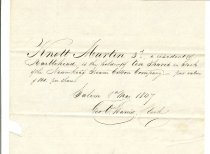 Knott Martin 3d. a resident of
Marblehead, is the holder of ten Shares in Stock
of the Naumkeag Steam Cotton Company — par value
of 100 per share
Salem 1st Mar 1847
Clerk